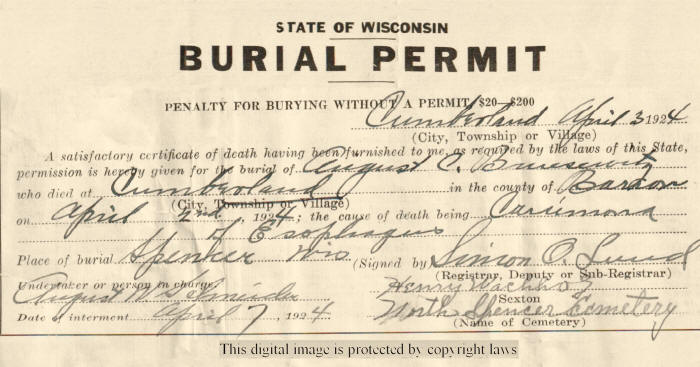 STATE OF WISCONSIN
BURIAL PERMIT
PENALTY FOR BURYING WITHOUT A PERMIT, $20—$200
Cumberland April 3 1924
(City, Township or Village)
A satisfactory certificate of death having been furnished to me, as required by the laws of this State,
permission is hereby given for the burial of August C.
who died at Cumberland in the county of Barron
(City, Township or Village)
on April 2nd, 1924; the cause of death being Carcimona
of Esophagus
Place of burial Spencer Wis (Signed by) Simon O. Lund
(Registrar, Deputy or Sub-Registrar)
Undertaker or person in charge Henry
August W. Sexton
Date of interment April 7, 1924 North Spencer Cemetery
(Name of Cemetery)
This digital image is protected by copyright laws